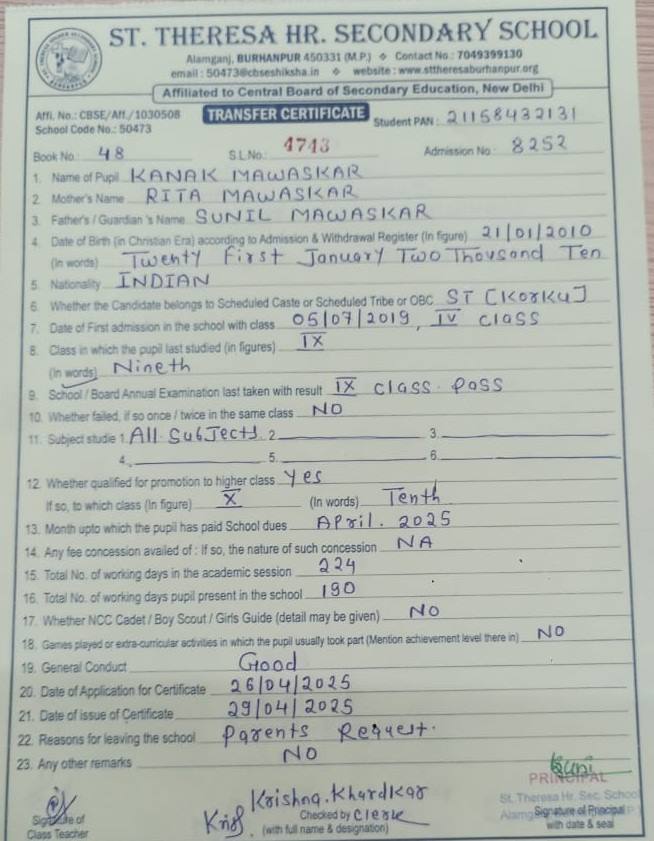 ST. THERESA HR. SECONDARY SCHOOL
Alamganj, BURHANPUR 450331 (M.P.) ❖ Contact No.: 7049399130
email : 50473@cbseshiksha.in ❖ website : www.sttheresaburhanpur.org
Affiliated to Central Board of Secondary Education, New Delhi
Affi. No.: CBSE/Aff./1030508 TRANSFER CERTIFICATE Student PAN : 21158432131
School Code No.: 50473
Book No. 48 S.L.No.: 4743 Admission No. 8252
1. Name of Pupil KANAK MAWASKAR
2. Mother's Name RITA MAWASKAR
3. Father's / Guardian 's Name SUNIL MAWASKAR
4. Date of Birth (in Christian Era) according to Admission & Withdrawal Register (In figure) 21/01/2010
(In words) Twenty First January Two Thousand Ten
5. Nationality INDIAN
6. Whether the Candidate belongs to Scheduled Caste or Scheduled Tribe or OBC ST [Korku]
7. Date of First admission in the school with class 05/07/2019, IV class
8. Class in which the pupil last studied (in figures) IX
(In words) Nineth
9. School / Board Annual Examination last taken with result IX class pass
10. Whether failed, if so once / twice in the same class NO
11. Subject studie 1. All Subjects 2. 3.
4. 5. 6.
12. Whether qualified for promotion to higher class Yes
If so, to which class (In figure) X (In words) Tenth
13. Month upto which the pupil has paid School dues April. 2025
14. Any fee concession availed of : If so, the nature of such concession NA
15. Total No. of working days in the academic session 224
16. Total No. of working days pupil present in the school 190
17. Whether NCC Cadet / Boy Scout / Girls Guide (detail may be given) NO
18. Games played or extra-curricular activities in which the pupil usually took part (Mention achievement level there in) NO
19. General Conduct Good
20. Date of Application for Certificate 26/04/2025
21. Date of issue of Certificate 29/04/2025
22. Reasons for leaving the school Parents Request.
23. Any other remarks NO
PRINCIPAL
Krishna. Khardkar St. Theresa Hr. Sec. School
Signature of Checked by Clerk Signature of Principal
Class Teacher (with full name & designation) with date & seal